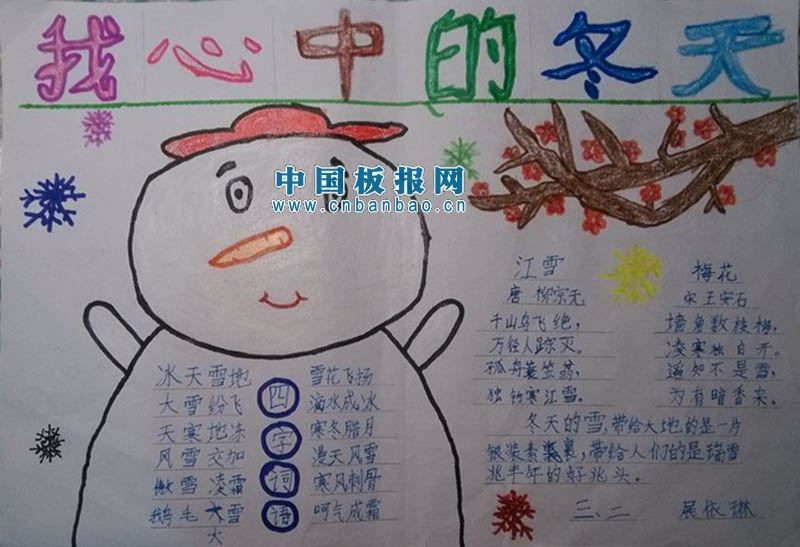 我心中的冬天
中国板报网
www.cnbanbao.cn
江雪
唐 柳宗元
千山鸟飞绝，
万径人踪灭。
孤舟蓑笠翁，
独钓寒江雪。
梅花
宋 王安石
墙角数枝梅，
凌寒独自开。
遥知不是雪，
为有暗香来。
冬天的雪，带给大地的是一片
银装素裹，带给人们的是瑞雪
兆半年的好兆头。
三、二 展依琳
四字词语
冰天雪地
大雪纷飞
天寒地冻
风雪交加
傲雪凌霜
鹅毛大雪
大
雪花飞扬
滴水成冰
寒冬腊月
漫天风雪
寒风刺骨
呵气成霜